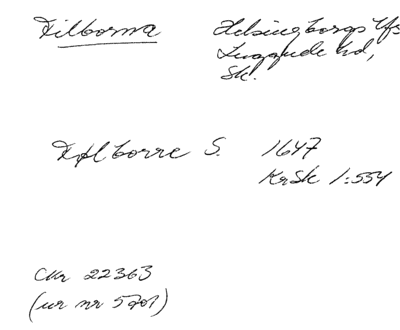 Filborna Helsingborgs Lfs
Luggude hd,
Sk.
Fjlborre S. 1647
KrSk 1:554
CKr 22363
(ur nr 5701)